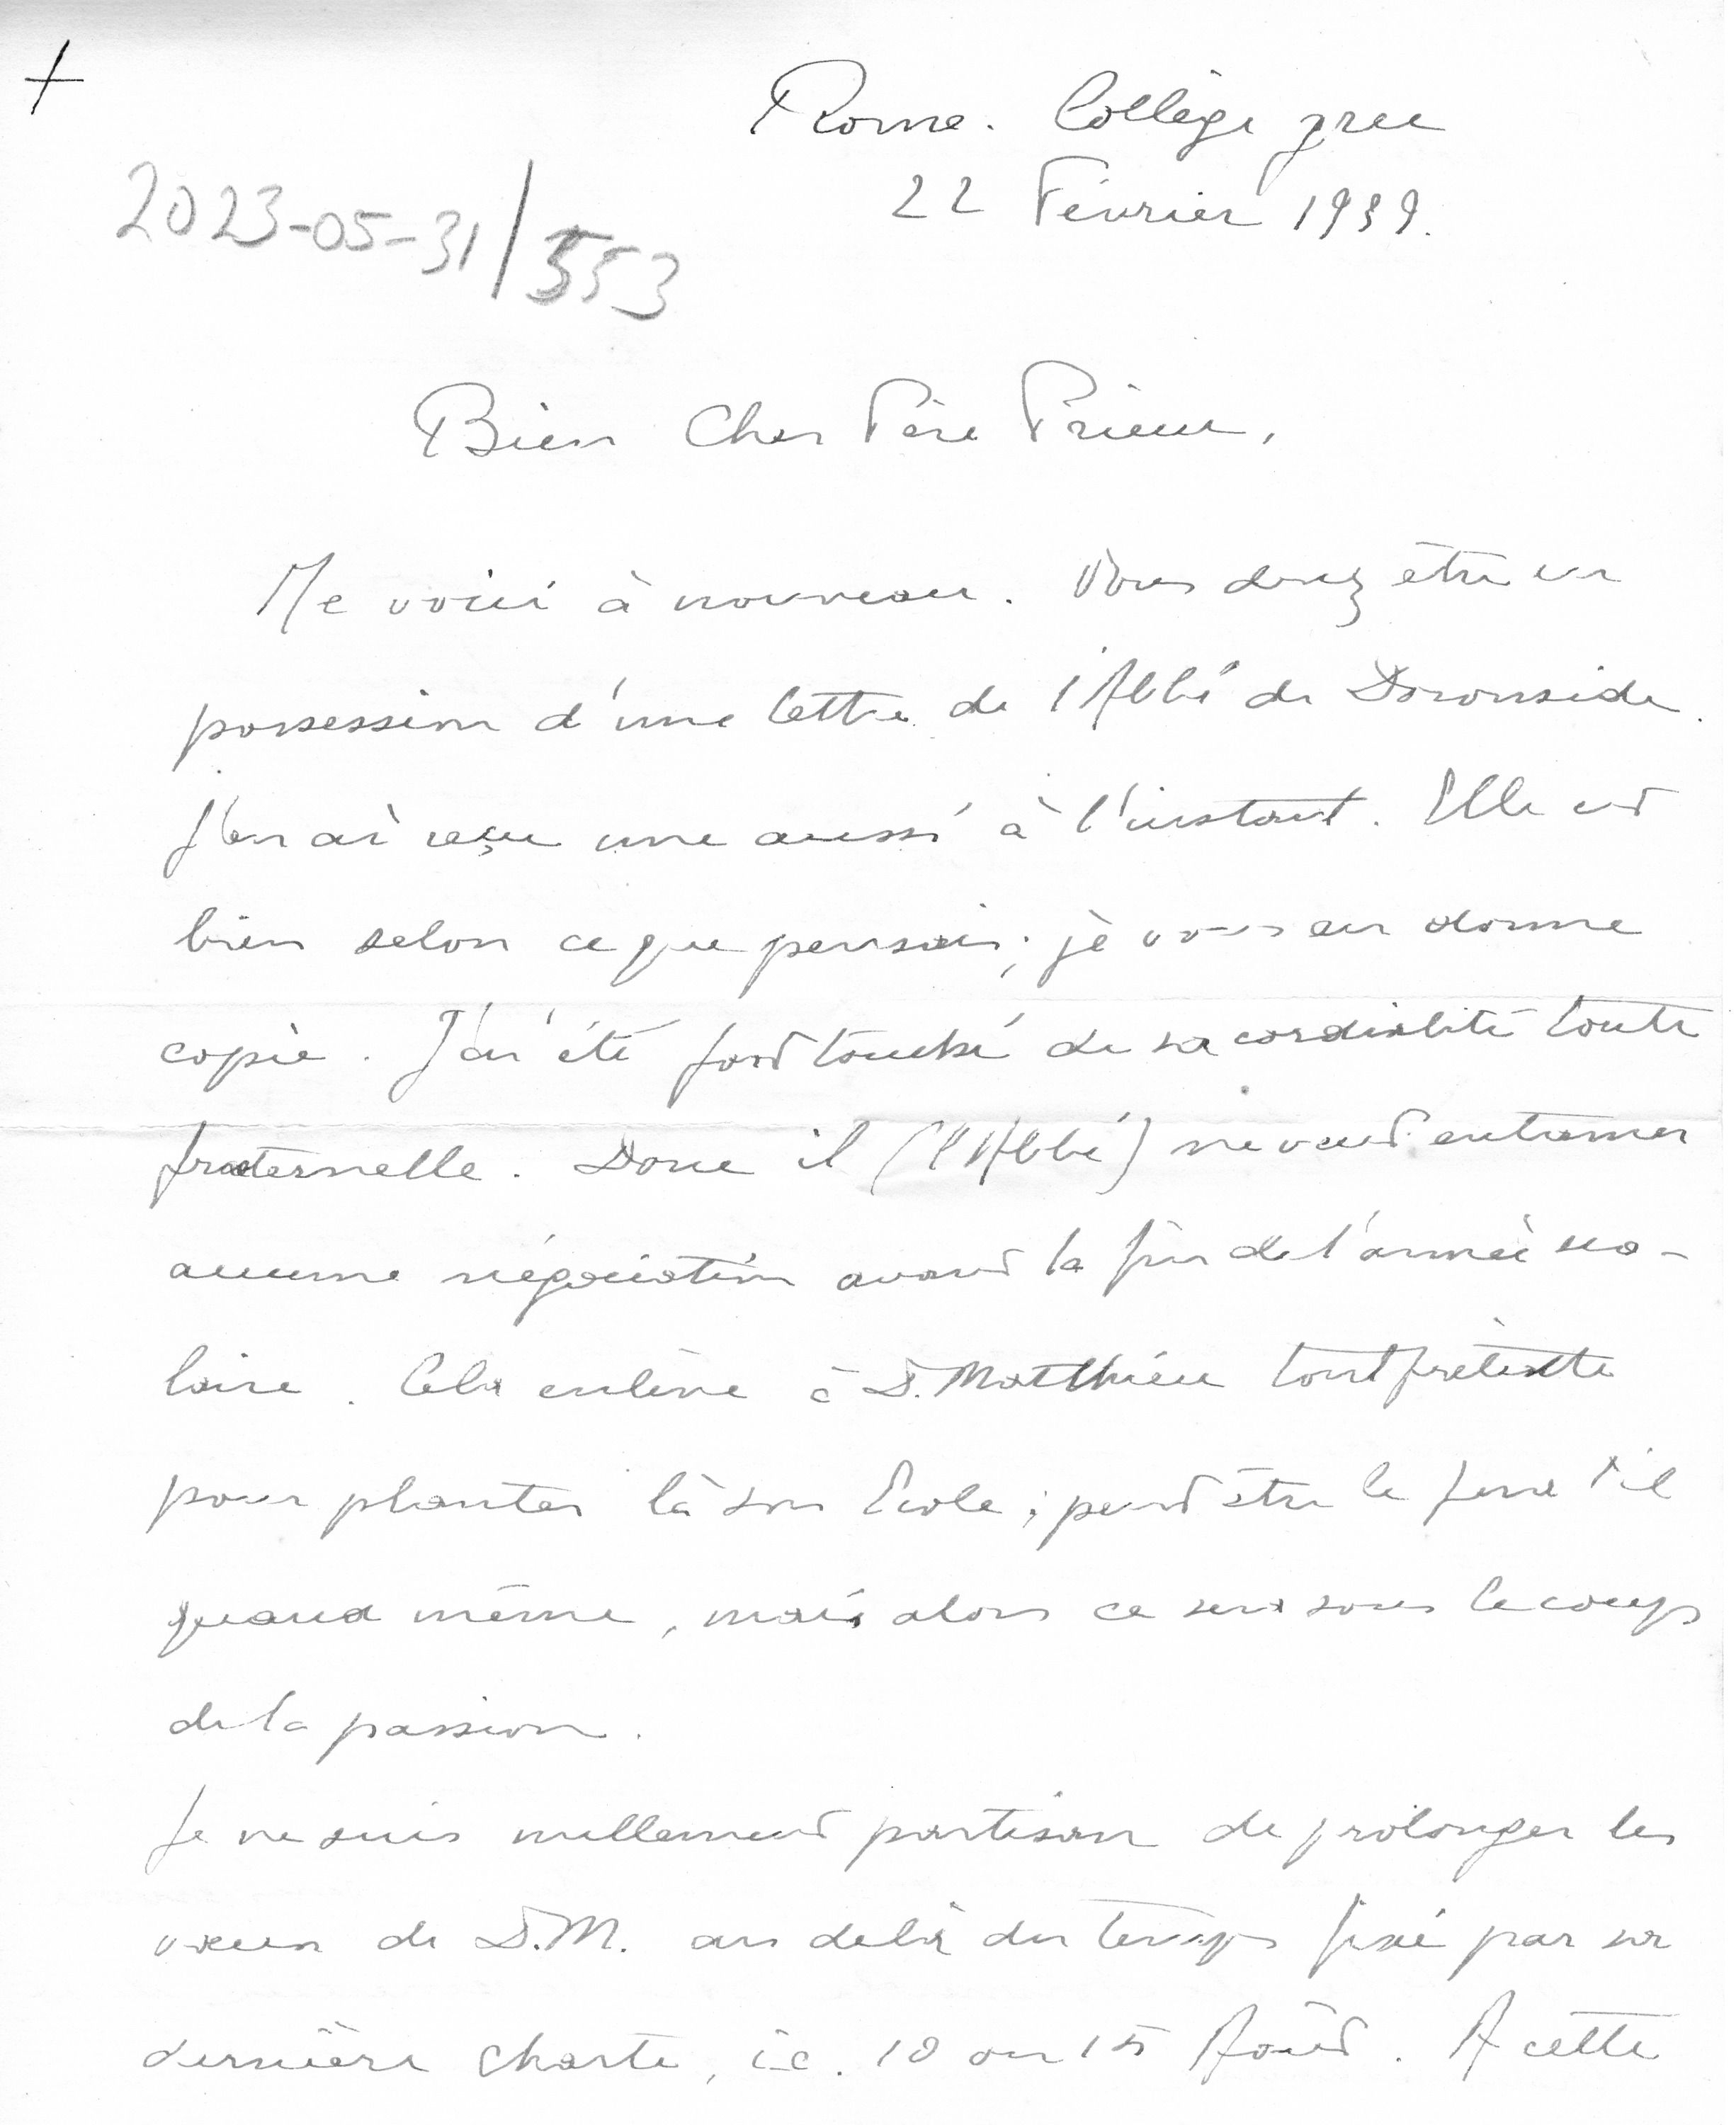 +
Rome. Collège grec
22 Février 1939.
2023-05-31/553
Bien Cher Père Prieur,
Me voici à nouveau. Vous devez être en
possession d'une lettre de l'Abbé de Downside.
J'en ai reçu une aussi à l'instant. Elle est
bien selon ce que pensais; je vous en donne
copie. J'ai été fort touché de sa cordialité toute
fraternelle. Donc il (l'Abbé) ne veut entamer
aucune négociation avant la fin de l'année sco-
laire. Cela enlève à D. Matthieu tout prétexte
pour planter là son Ecole; peut être le fera t'il
quand même, mais alors ce sera sous le coup
de la passion.
Je ne suis nullement partisan de prolonger les
vœux de D.M. au delà du temps fixé par sa
dernière charte, i.e. 10 ou 15 Août. A cette